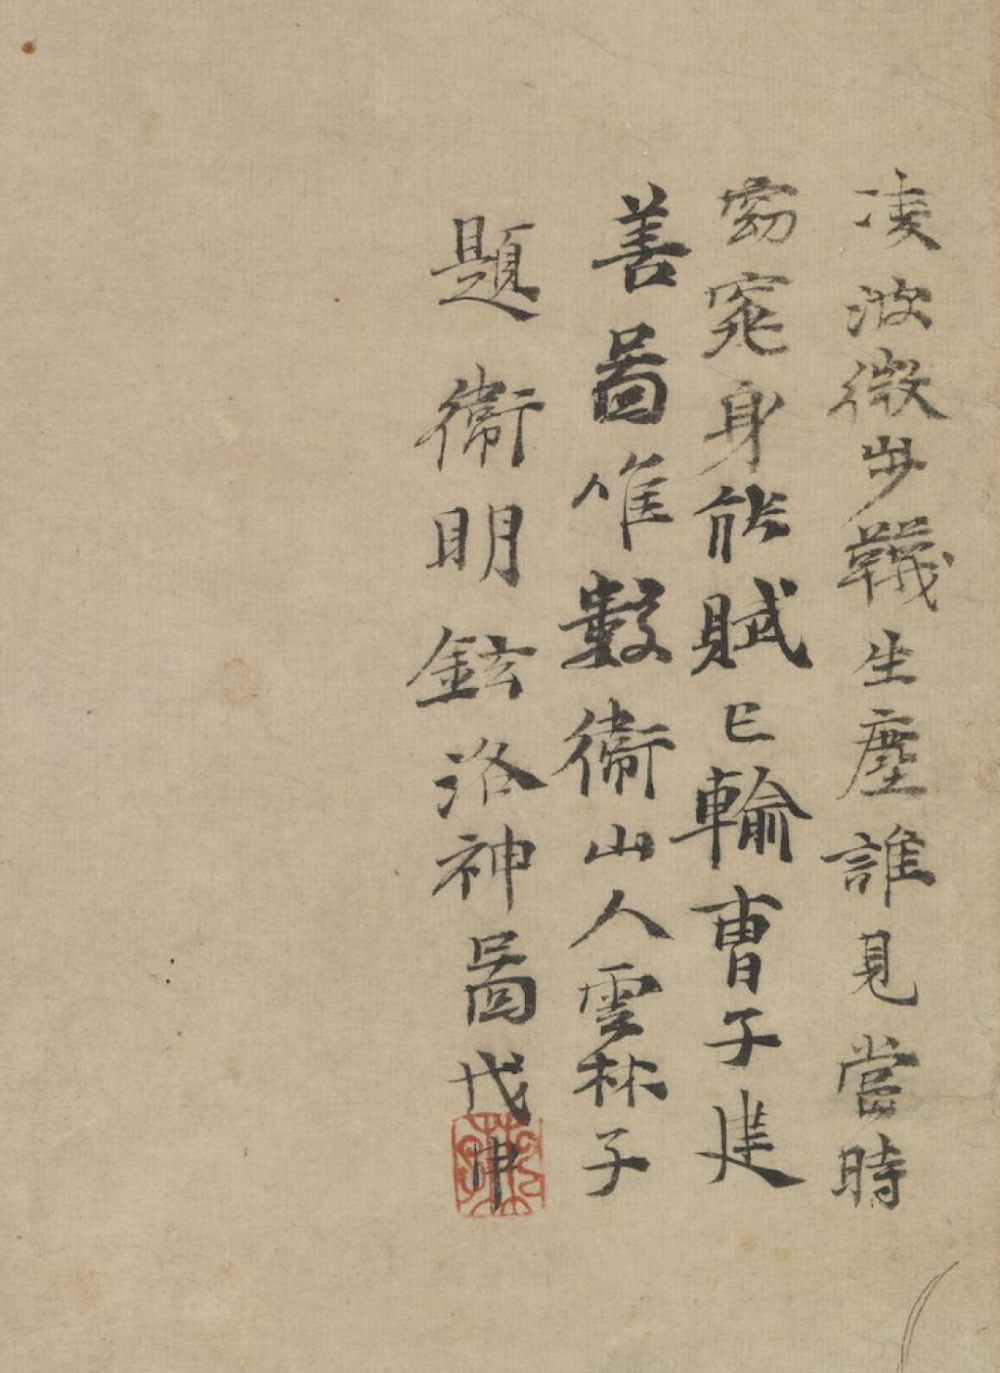 凌波微步韈生塵誰見當時
窈窕身能賦已輸曹子建
善啚唯數衛山人雲林子
題衛明鉉洛神啚戊申